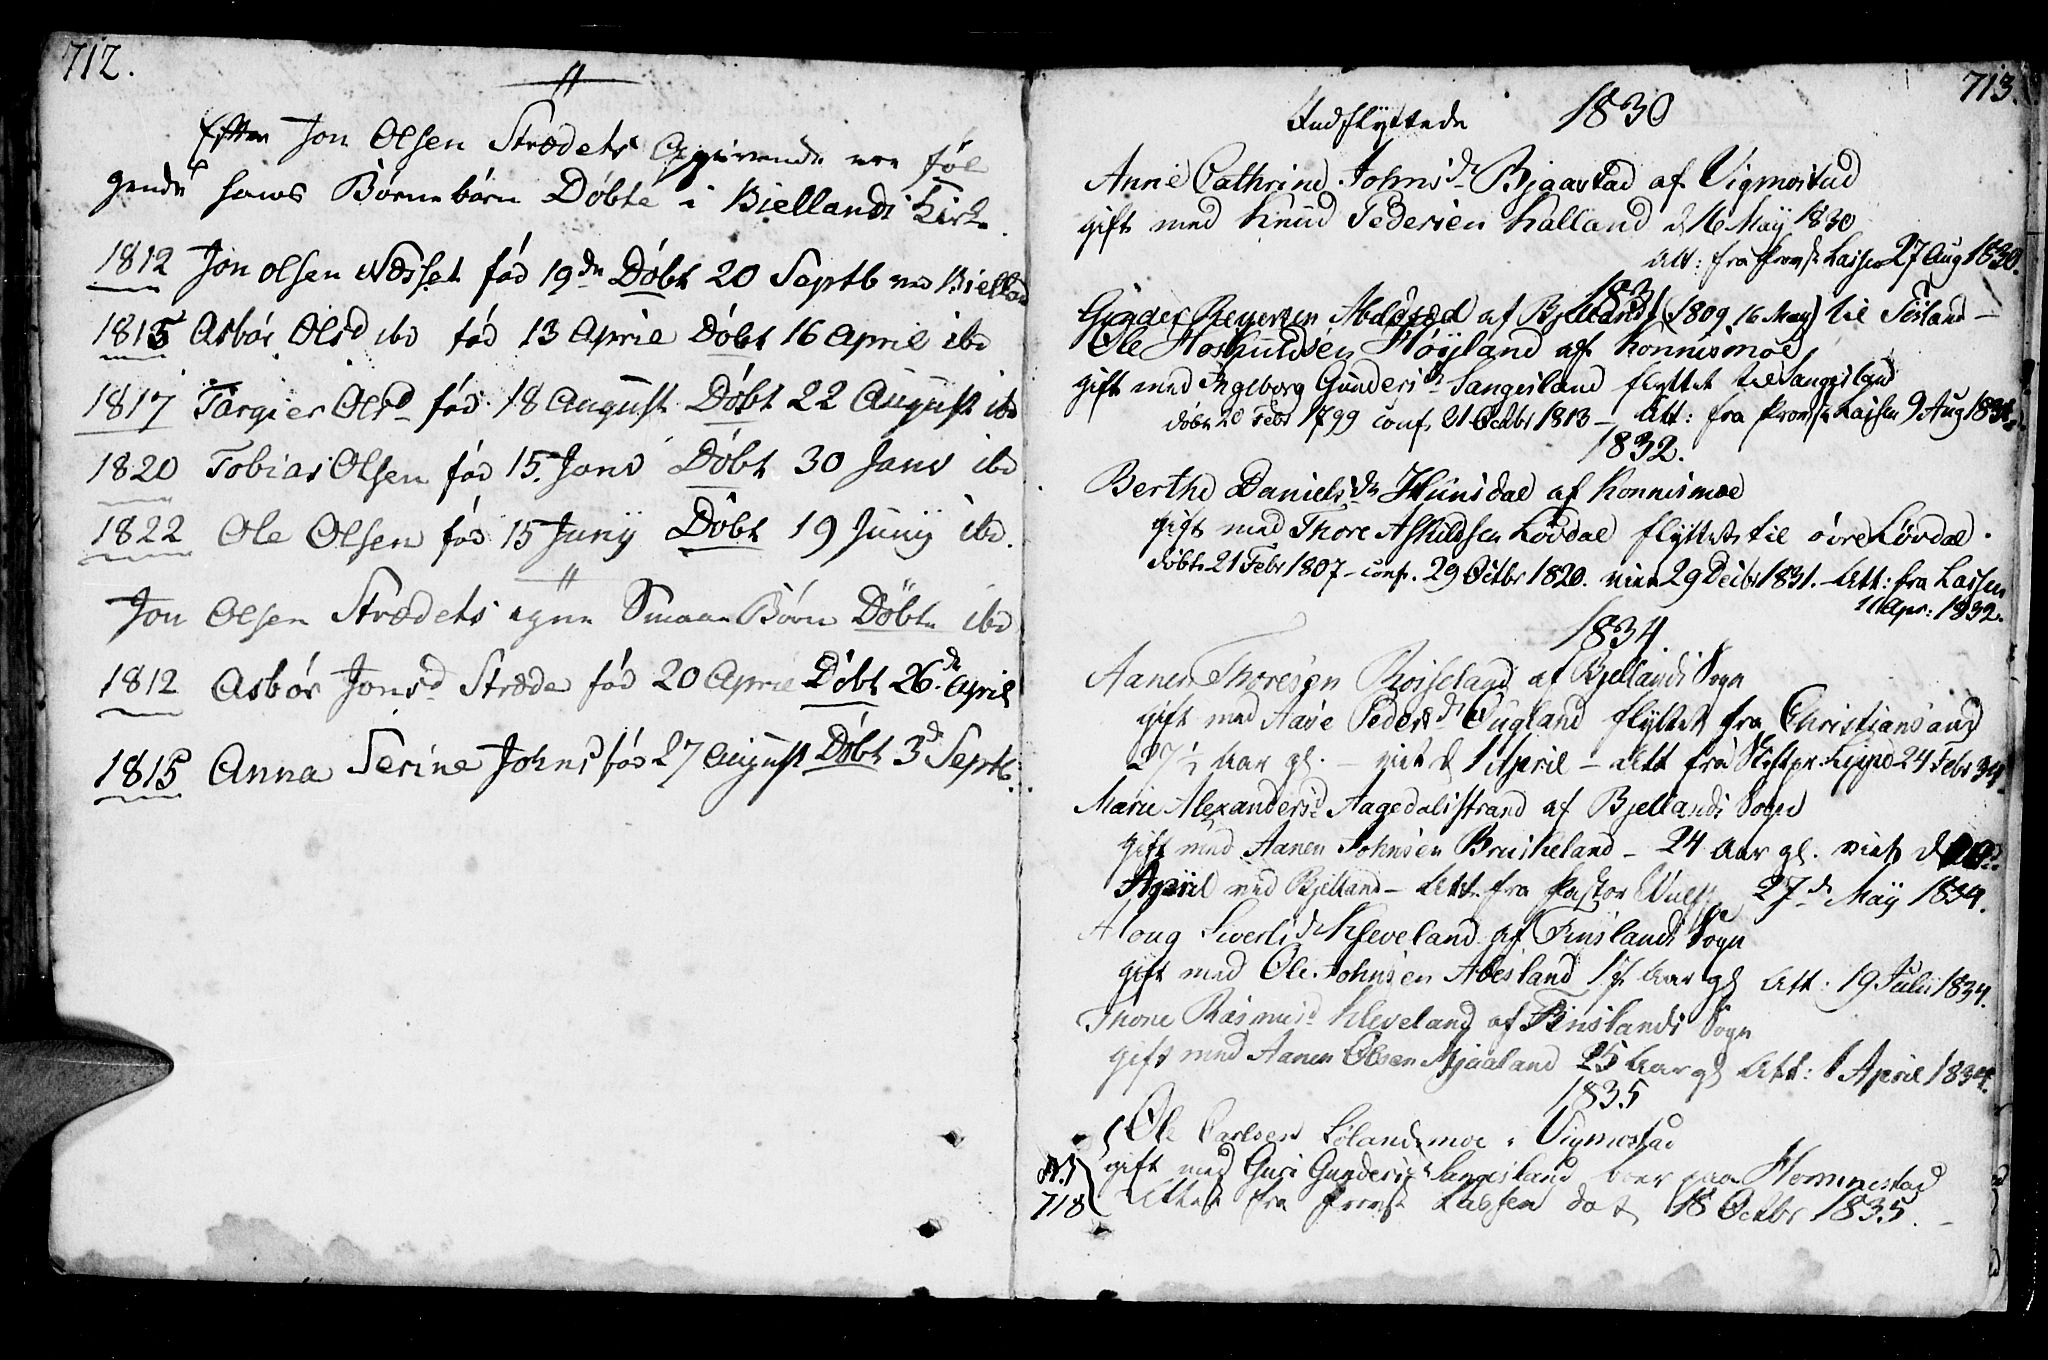 712.
Efter Jon Olsen Strædets Opgivende ere føl
gende hans Børnebørn Døbte i Biellands Kirke
1812 Jon Olsen Næsset fød 19de Døbt 20 Septb ved Bielland
1815 Asbør Olsd ibd fød 13 April Døbt 16 April ibd
1817 Targier Olsd fød 18 August Døbt 22 August ibd
1820 Tobias Olsen fød 15. Janv Døbt 30 Janv ibd
1822 Ole Olsen fød 15 Junÿ Døbt 19 Junÿ ibd.
Jon Olsen Strædets egne Smaae Børn Døbte ibd
1812 Asbør Jonsd Stræde fød 20 April Døbt 26.de April
1815 Anna Serine Johnsd fød 27 August Døbt 3de Septb.
713.
Indflyttede 1830
Anne Cathrine Johnsdr Bjaastad af Vigmostad
gift med Knud Pedersen Kalland d 16 Maÿ 1830
Att: fra Provst Lassen 27 Aug 1830.
1831
Reyersen af Bjelland (1809 16 Maÿ) til
Ole Høyland af Konnismoe
gift med Ingeborg Gundersdr Sangesland flyttet til Sangesland
døbt 20 Febr 1799 conf. 21 Octbr 1813 – Att: fra Provst Lassen 9 Aug 1831.
1832.
Berthe Danielsdr Hunsdal af Konnismoe
gift med Thore Askildsen Løvdal flyttet til øvre Løvdal.
døbt 21 Febr 1807 – conf. 29 Octbr 1820. viet 29 Decbr 1831. – Att: fra Lassen
11 Apr: 1832.
1834.
Aanen Thoresen Roiseland af Bjellands Sogn
gift med Aase Pedersdr Øugland flyttet fra Christiansand
27½ Aar gl. – viet d 1 April – Att fra Stiftpr. 24 Febr 34.
Marie Alexandersd Aagedalsstrand af Bjellands Sogn
gift med Aanen Johnsen Bruskeland – 24 Aar gl. viet d
April ved Bjelland – Att. fra Pastor Wulff 27de Maÿ 1834.
Aloug Siversdr Kleveland af Finslands Sogn
gift med Ole Johnsen Abesland 17 Aar gl Att: 19 Julii 1834.
Thone Rasmusd Kleveland af Finslands Sogn
gift med Aanen Olsen Mjaaland 25 Aar gl Att: 1 April 1834.
1835
Ole Carlsen Lølandsmoe i Vigmostad
gift med Guri Gundersdr Sangesland boer paa Hommestad
Attest fra Provst Lassen dat 18 Octbr 1835. –
N.1
718